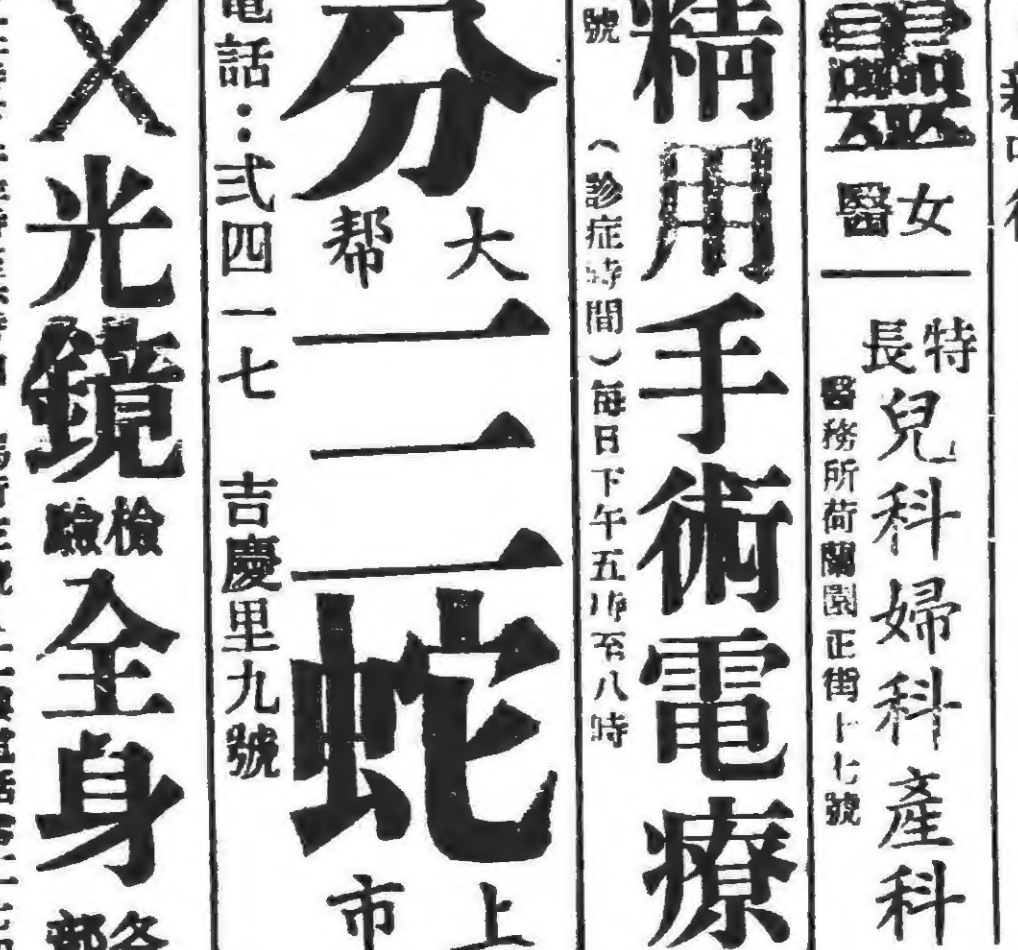 靈
女醫
特長
兒科婦科產科
醫務所荷蘭園正街十七號
精用手術電療
號 (診症時間)每日下午五時至八時
分
大帮
三蛇
上市
電話：弍四一七 吉慶里九號
X光鏡
檢驗
全身